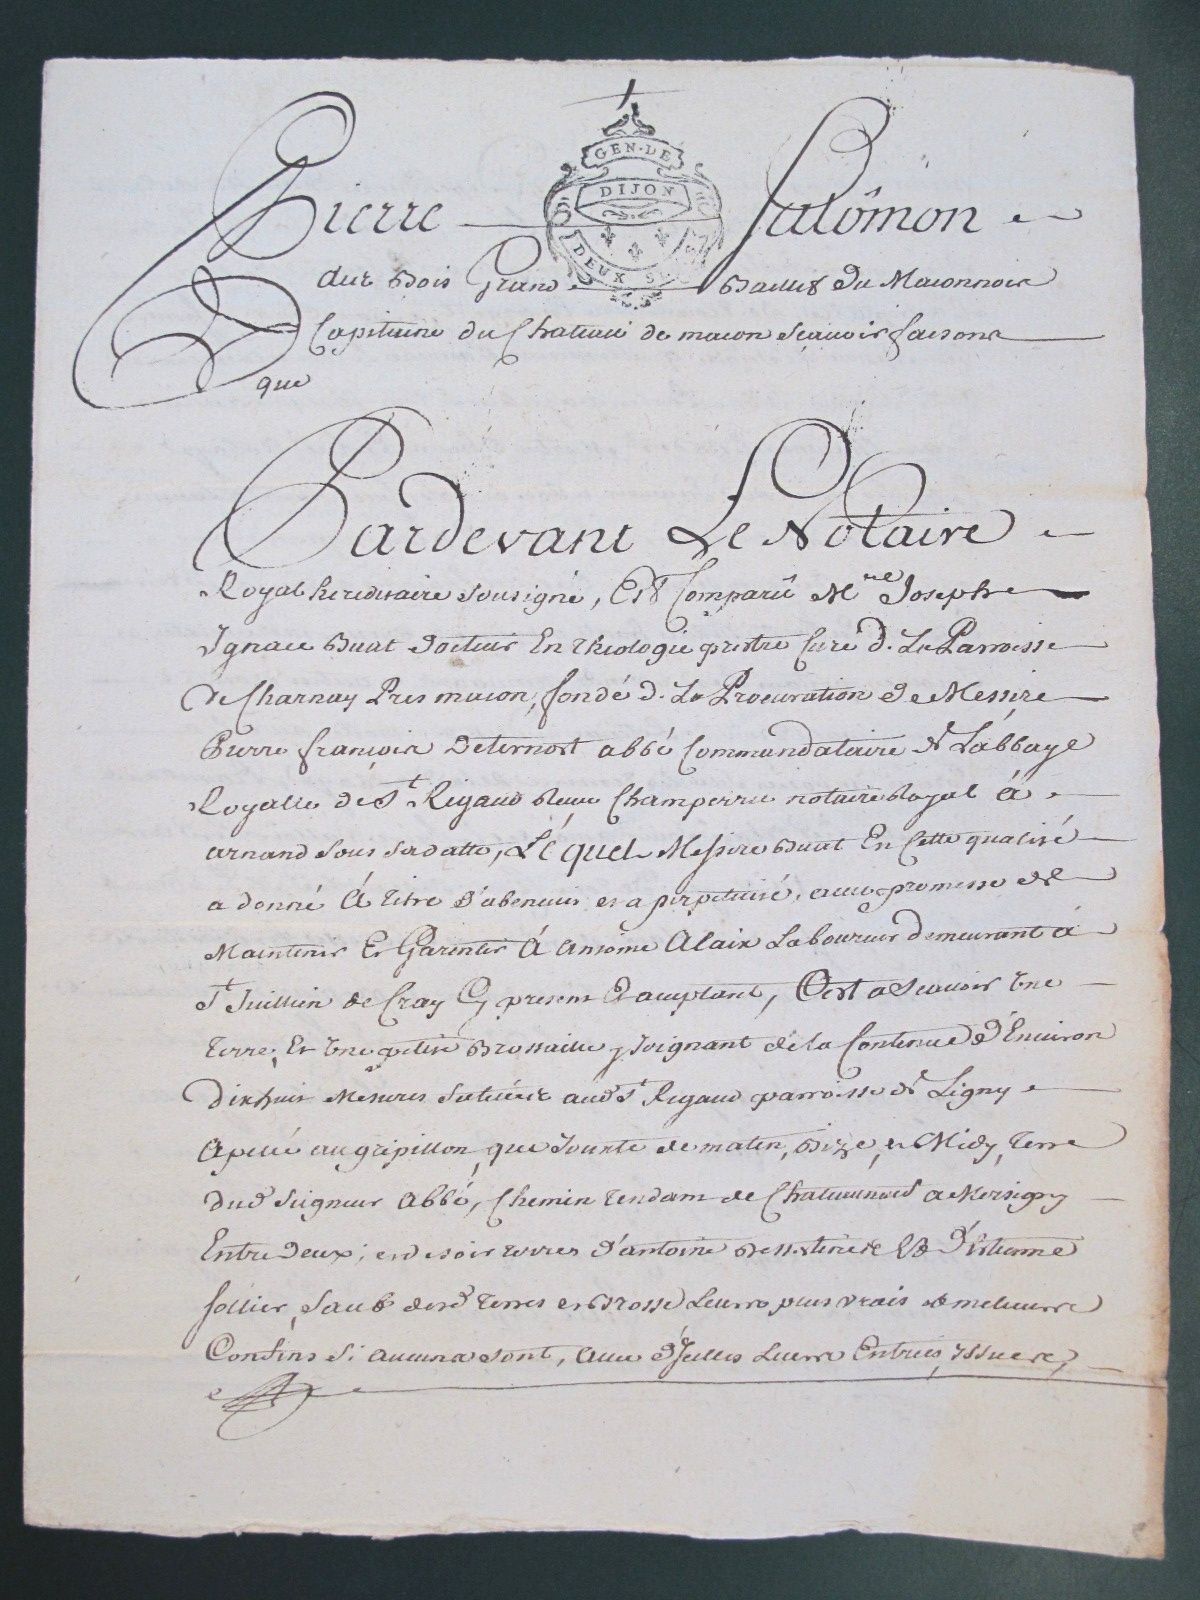 GEN·DE
DIJON
DEUX S
Pierre Salômon
dur Bois Grand Baillif du Maconnois
Capitaine du Chateau de macon Scavoir faisons
que
Pardevant Le Notaire
Royal hereditaire sousigné, Est Comparû Mre Joseph
Ignace Buat Docteur En theologie prestre Curé de La Parroisse
de Charnay Pres macon, fondé de La Procuration de Messire
Pierre françois Deternost abbé Commandataire de L'abbaye
Royalle de St Rigaud Reçue Champerru notaire Royal á
arnand sous sa datte, Lé quel Messire Buat En Cette qualité
a donné Á titre d'abenevis et a perpetuité, avec promesse de
Maintenir Et Garentir Á Antoine Alaix Laboureur demeurant á
St Juillien de Cray Cy present Et aceptant, C'est a Scavoir Une
terre, Et Une petite Brossaille y Joignant de la Contenue d'Environ
Dixhuit Mesures Scituées aud. St Rigaud parroisse de Ligny
Apellé au gripillon, que Jouxte de matin, Bize, et Midy, terre
dud. Seigneur Abbé, Chemin tendant de Chateauneuf a Mersigny
Entre Deux; et de soir terres d'antoine Et d'Estienne
follier, Sauf desd. terres et Brosse Leurs plus vrais et meilleurs
Confins Si aucuns sont, avec d'Jcelles Leurs Entrées, issues,